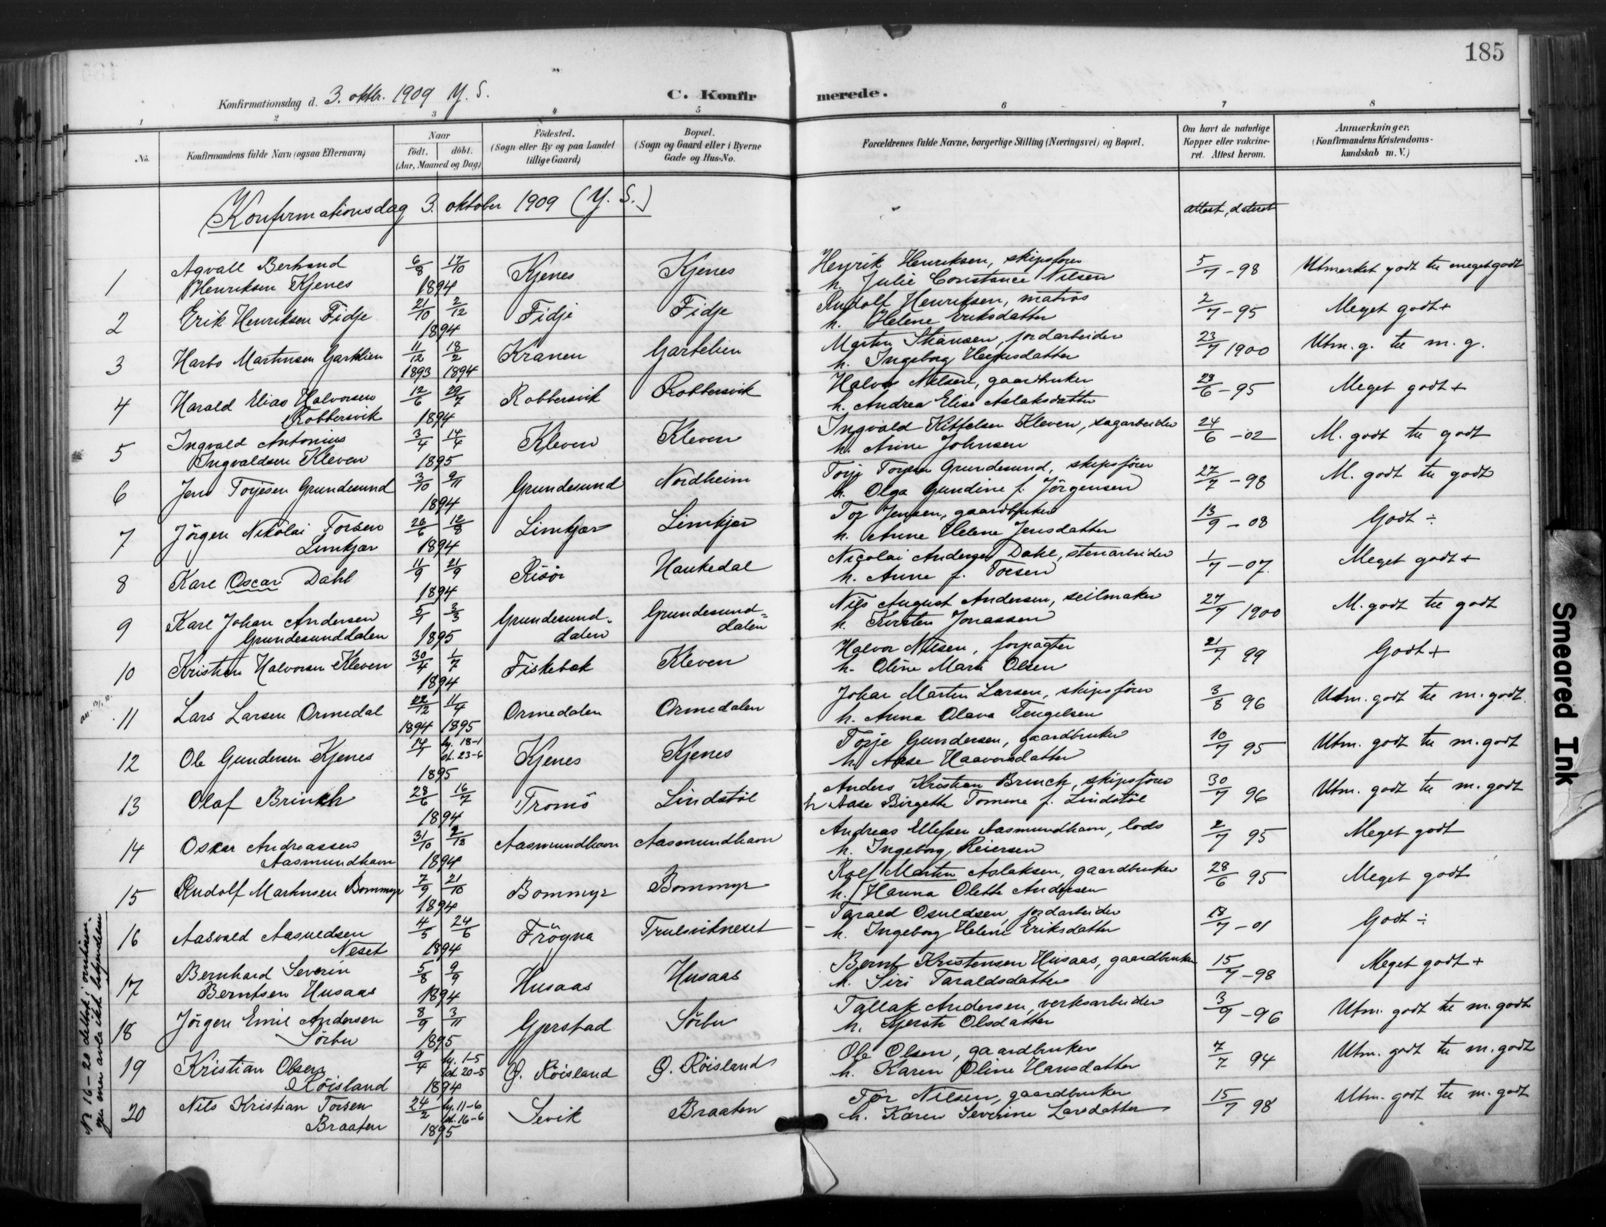 185
Konfirmationsdag d. 3. oktbr. 1909 Y. S.
C. Konfir merede.
1 2 3 4 5 6 7 8
No. Konfirmandens fulde Navn (ogsaa Efternavn) Naar født. døbt. (Aar, Maaned og Dag) Fødested. (Sogn eller By og paa Landet tillige Gaard) Bopæl. (Sogn og Gaard eller i Byerne Gade og Hus-No. Forældrenes fulde Navne, borgerlige Stilling (Næringsvei) og Bopæl. Om havt de naturlige Kopper eller vaccineret. Attest herom. Anmærkninger. (Konfirmandens Kristendomskundskab m. V.)
Konfirmationsdag 3. oktober 1909 (Y. S.) attest, dateret
1 Agvall Bertrand Henriksen Kjenes 6/8 17/10 1894 Kjenes Kjenes Henrik Henriksen, skipsfører h. Julie Constance Nilsen 5/7-98 Utmerket godt til meget godt
2 Erik Henriksen Fidje 21/10 2/12 1894 Fidje Fidje Rudolf Henriksen, matros h. Helene Eriksdatter 2/7-95 Meget godt+
3 Harbo Martinsen Gartelien 11/12 1893 18/2 1894 Kranen Gartelien Martin Hansen, jordarbeider h. Ingeborg 23/7 1900 Utm. g. til m. g.
4 Harald Elias Halvorsen Robbersvik 12/6 29/7 1894 Robbersvik Robbersvik Halvor Nilsen, gaardbruker h. Andrea Elise Aslaksdatter 23/6-95 Meget godt+
5 Ingvald Antonius Ingvaldsen Kleven 3/4 14/4 1895 Kleven Kleven Ingvald Kittelsen Kleven, sagarbeider h. Anne Johnsen 24/6-02 M. godt til godt
6 Jens Torjesen Grundesund 3/10 9/11 1894 Grundesund Nordheim Torje Torjesen Grundesund, skipsfører h. Olga Gundine f. Jörgensen 27/7-98 M. godt til godt
7 Jörgen Nikolai Torsen Limkjær 26/6 12/8 1894 Limkjær Limkjær Tor Jensen, gaardbruker h. Anne Helene Jensdatter 13/9-08 Godt ÷
8 Karl Oscar Dahl 11/9 21/9 1894 Risör Haukedal Nicolai Andersen Dahl, stenarbeider h. Anne f. Torsen 1/7-07 Meget godt+
9 Karl Johan Andersen Grundesunddalen 5/1 3/3 1895 Grundesunddalen Grundesunddalen Nils August Andersen, seilmaker h. Kirsten Jonassen 27/7 1900 M. godt til godt
10 Kristian Halvorsen Kleven 30/4 1/7 1894 Fiskebæk Kleven Halvor Nilsen, forpagter h. Oline Marie Olsen 21/7 99 Godt+
11 Lars Larsen Ormedal 22/12 1894 11/4 1895 Ormedalen Ormedalen Johan Martin Larsen, skipsfører h. Anna Olava Tengelsen 3/8 96 Utm. godt til m. godt
12 Ole Gundersen Kjenes 14/1 hj. 18-1 st. 23-6 1895 Kjenes Kjenes Torje Gundersen, gaardbruker h. Aase Haavorsdatter 10/7 95 Utm. godt til m. godt
13 Olaf Brinch 28/6 16/7 1894 Tromö Lindstöl Anders Kristian Brinck, skipsfører h. Aase Birgethe Tomine f. Lindstöl 30/7 96 Utm. godt til m. godt
14 Oskar Andreassen Aasmundhavn 31/10 2/12 1894 Aasmundhavn Aasmundhavn Andreas Ellefsen Aasmundhavn, lods h. Ingeborg Reiersen 2/7 95 Meget godt
15 Rudolf Martinsen Bommyr 7/9 21/10 1894 Bommyr Bommyr Roel Martin Aslaksen, gaardbruker h. Hanna Olette Andersen 28/6 95 Meget godt
16 Aasvald Aasuldsen Neset 4/5 24/6 1894 Fröyna Trulsvikneset Tarald Osuldsen, jordarbeider h. Ingeborg Helene Eriksdatter 18/7-01 Godt ÷
17 Bernhard Severin Berntsen Husaas 5/8 9/9 1894 Husaas Husaas Bernt Kristensen Husaas, gaardbruker h. Siri Taraldsdatter 15/7-98 Meget godt+
18 Jörgen Emil Andersen Sörbu 8/9 3/11 1895 Gjerstad Sörbu Tallak Andersen, verksarbeider h. Kjersti Olsdatter 3/9-96 Utm. godt til m. godt
19 Kristian Olsen Röisland 9/4 hj. 1-5 st. 20-5 1894 Ö. Röisland Ö. Röisland Ole Olsen, gaardbruker h. Karen Oline Hansdatter 7/7 94 Utm. godt til m. godt
20 Nils Kristian Torsen Braaten 24/2 hj. 11-6 st. 16-6 1895 Sevik Braaten Tor Nilsen, gaardbruker h. Karen Severine Larsdatter 15/7 98 Utm. godt til m. godt
Nr. 16-20 deltok i overhøringen men avla ikke bekjendelsen
Smeared Ink